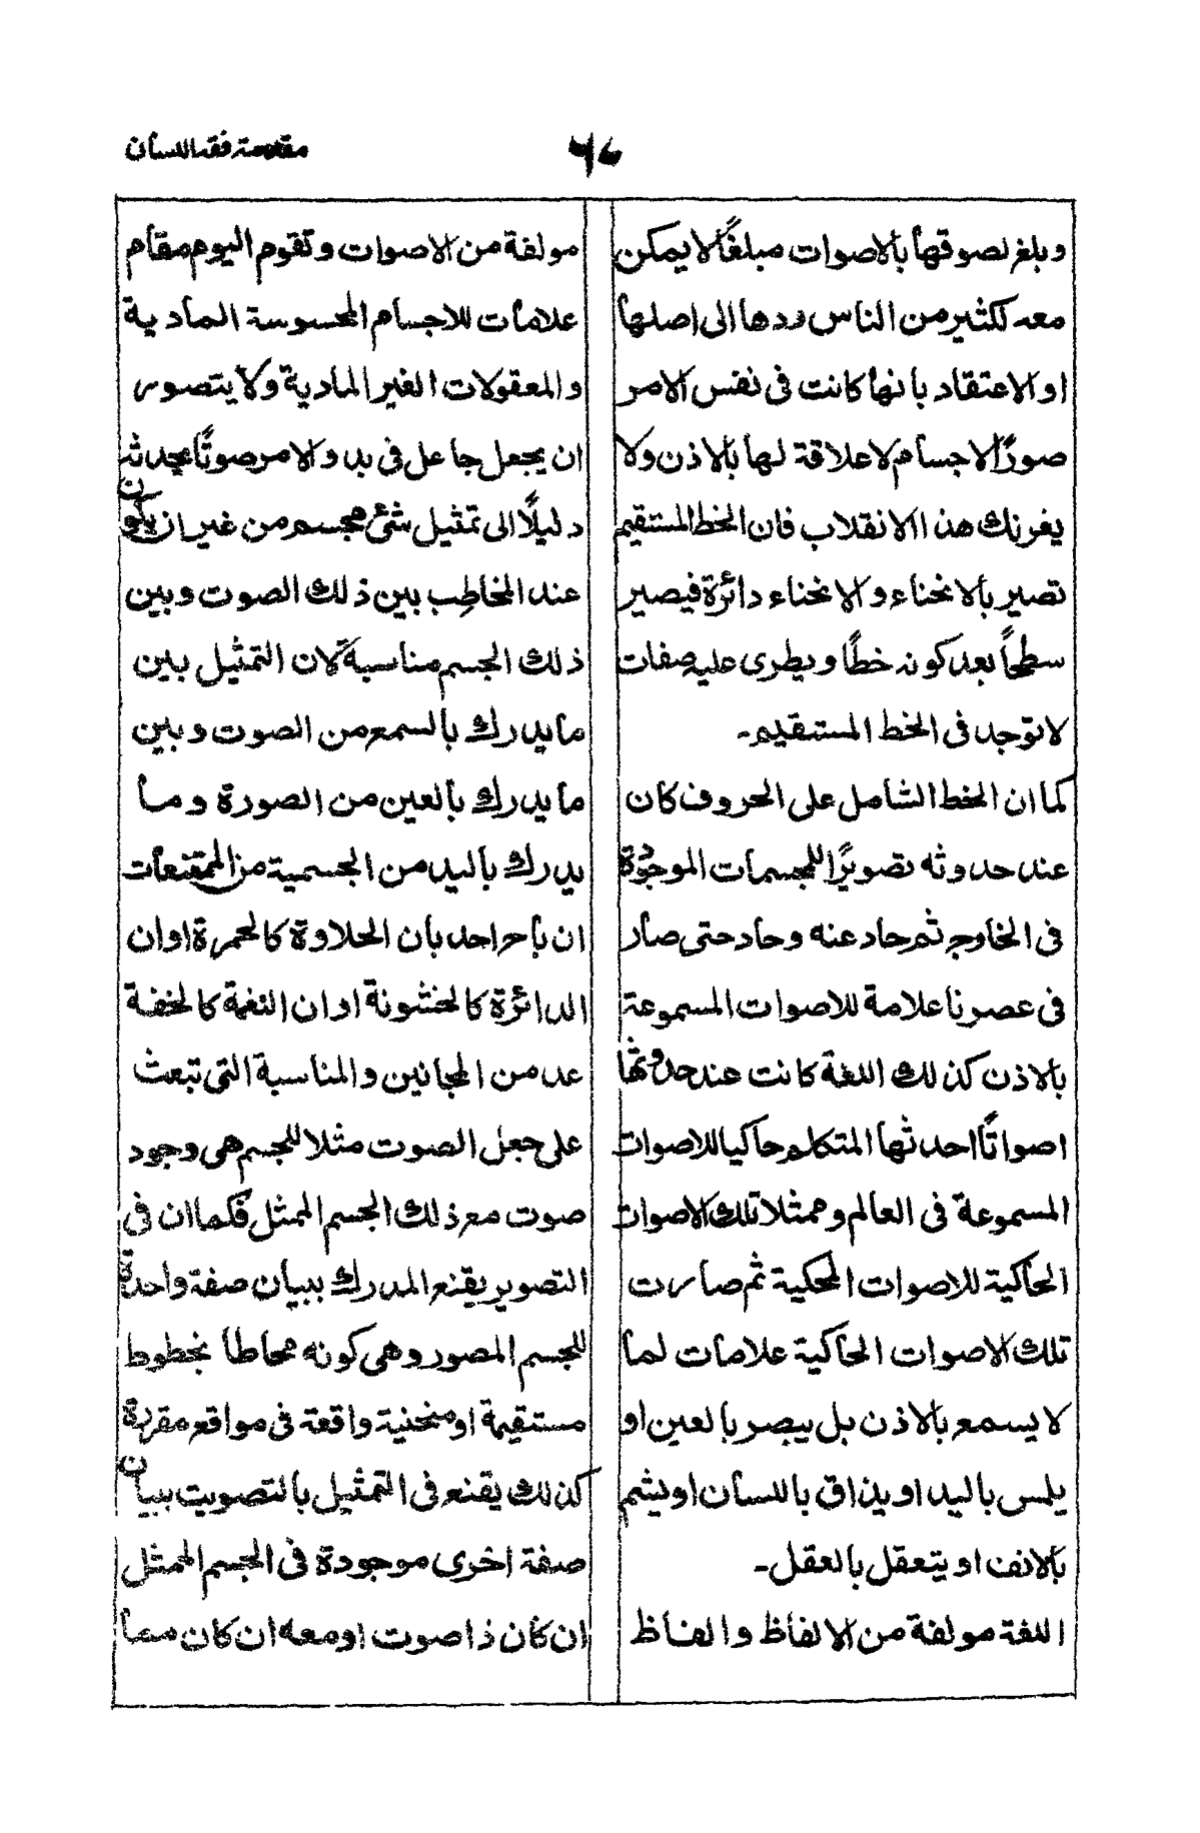 مقدمة فقه اللسان
٦٧
وبلغ لصوقها بالاصوات مبلغًا لا يمكن
معه لكثير من الناس ردها الى اصلها
او الاعتقاد بانها كانت فى نفس الامر
صورًا لاجسام لا علاقة لها بالاذن ولا
يغرنك هذا الانقلاب فان الخط المستقيم
تصير بالانحناء والانحناء دائرة فيصير
سطحاً بعد كونه خطًا ويطرى عليه صفات
لا توجد فى الخط المستقيم۔
كما ان الخط الشامل على الحروف كان
عند حدوثه تصويرًا للمجسمات الموجودة
فى الخارج ثم حاد عنه وحاد حتى صار
فى عصرنا علامة للاصوات المسموعة
بالاذن كذلك اللغة كانت عند حدوثها
اصواتًا احدثها المتكلم حاكيا للاصوات
المسموعة فى العالم وممثلا تلك الاصوات
الحاكية للاصوات المحكية ثم صارت
تلك الاصوات الحاكية علامات لما
لا يسمع بالاذن بل يبصر بالعين او
يلمس باليد او يذاق باللسان او يشم
بالانف او يتعقل بالعقل۔
اللغة مولفة من الالفاظ والفاظ
مولفة من الاصوات وتقوم اليوم مقام
علامات للاجسام المحسوسة المادية
والمعقولات الغير المادية ولا يتصور
ان يجعل جاعل فى بدو الامر صوتًا يحدثه
دليلًا الى تمثيل شئ مجسم من غير ان يكون
عند المخاطب بين ذلك الصوت وبين
ذلك الجسم مناسبة لان التمثيل بين
ما يدرك بالسمع من الصوت وبين
ما يدرك بالعين من الصورة وما
يدرك باليد من الجسمية من الممتنعات
ان باح احد بان الحلاوة كالحمرة او ان
الدائرة كالخشونة او ان النغمة كالخفة
عد من المجانين والمناسبة التى تبعث
على جعل الصوت مثلا للجسم هى وجود
صوت مع ذلك الجسم الممثل فكما ان فى
التصوير يقنع المدرك ببيان صفة واحدة
للجسم المصور وهى كونه محاطا بخطوط
مستقيمة او منحنية واقعة فى مواقع مقررة
كذلك يقنع فى التمثيل بالتصويت ببيان
صفة اخرى موجودة فى الجسم الممثل
ان كان ذا صوت او معه ان كان مما